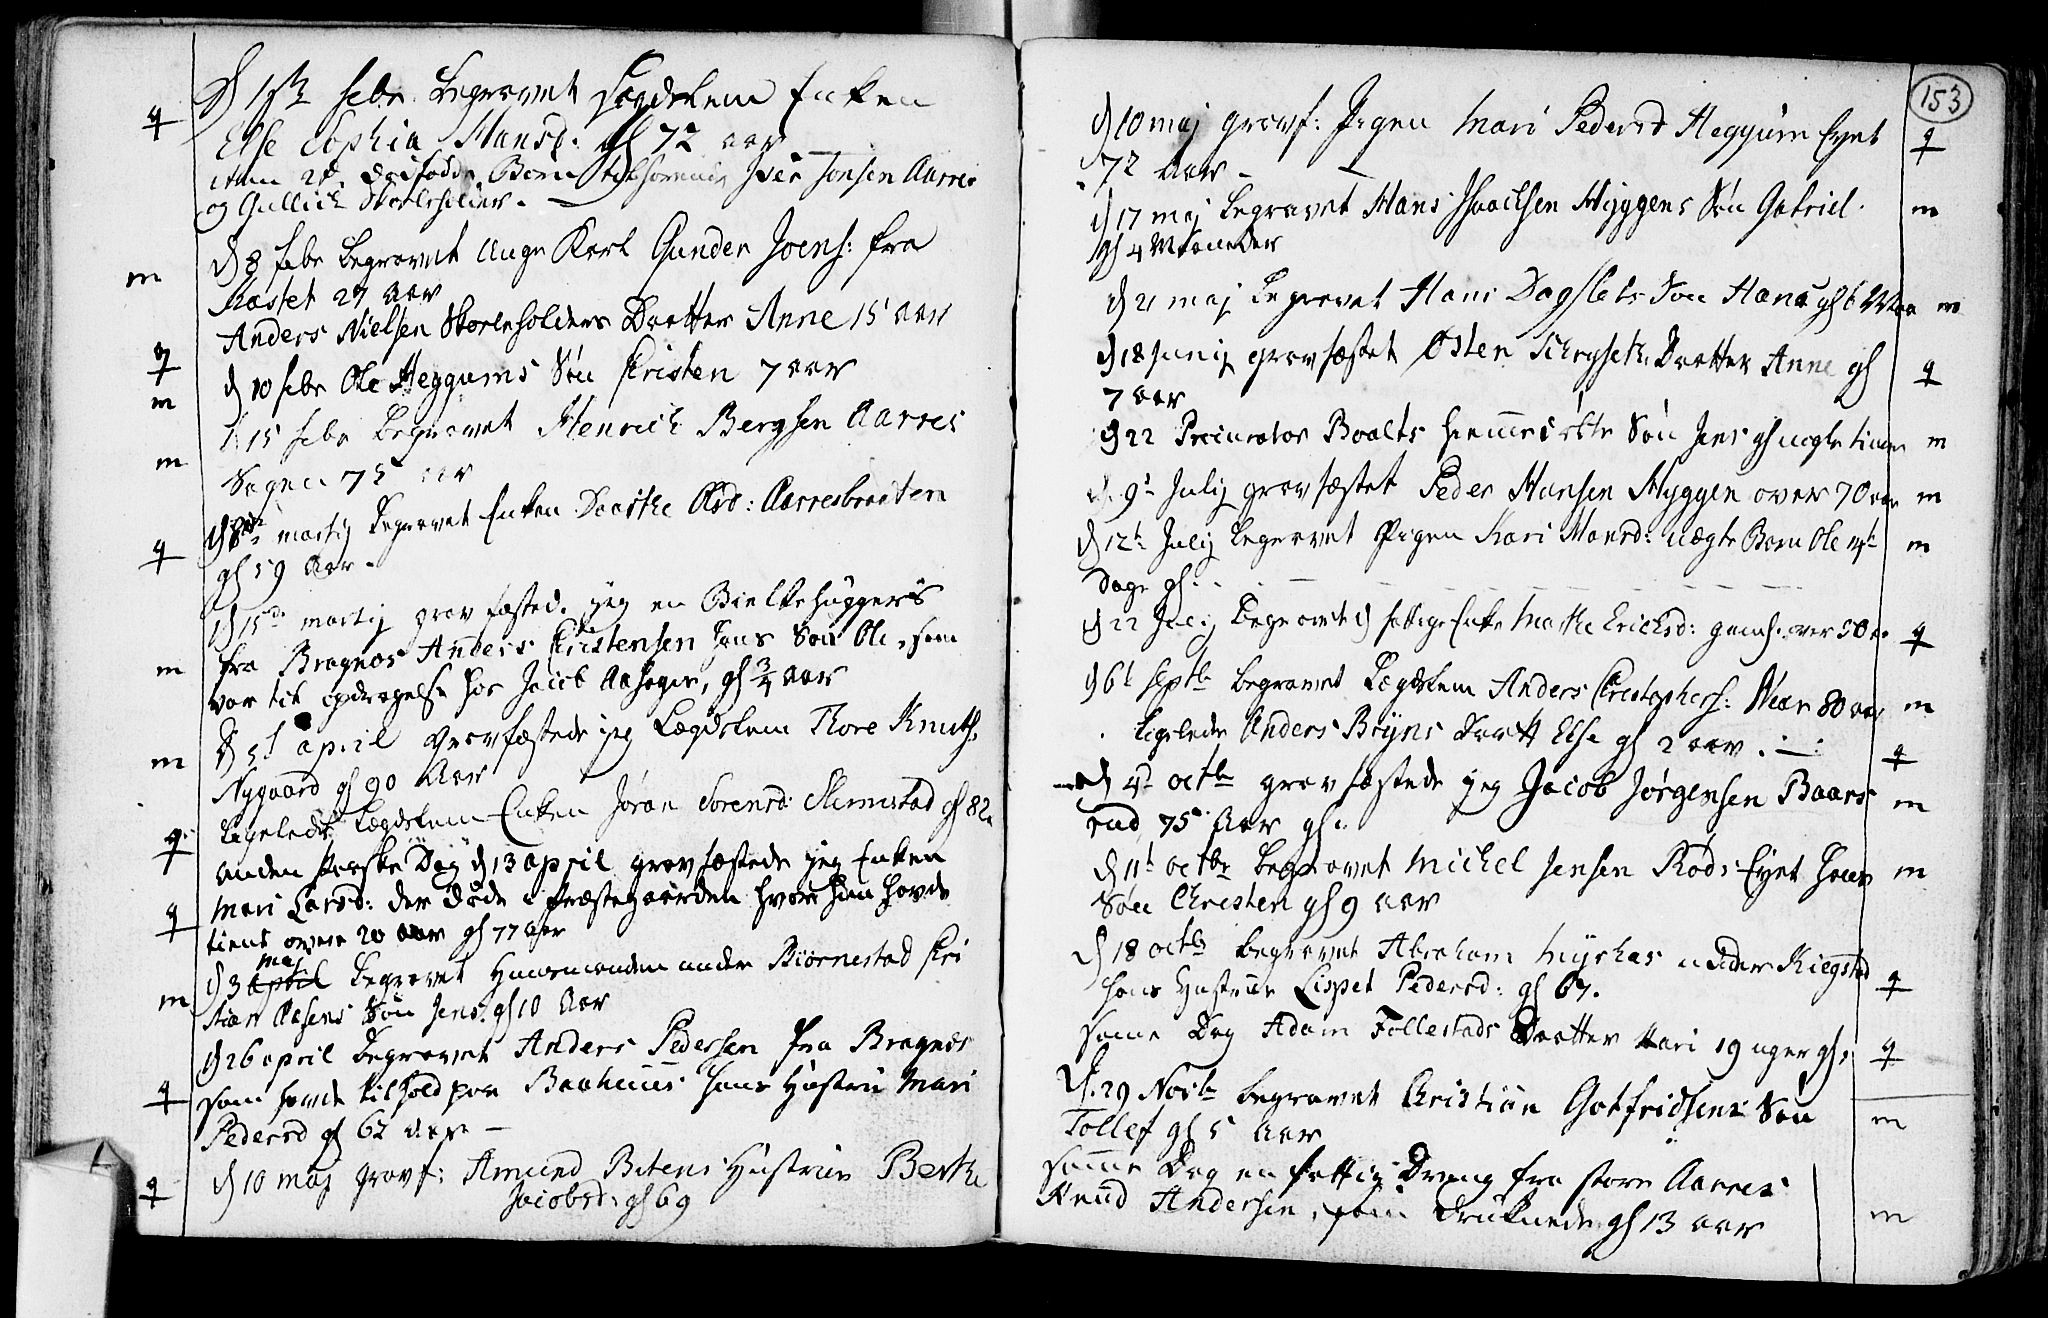 d 1ste febr. begravet Lægdslem Enken
q Else Sophia Hansd: gl 72 aar
item 2de dødfødde Børn tilhørende Iver Jonsen Aarres
og Gullich Skoleholder.
d 8 febr begravet unge Karl Gunder Joens: fra
m Kastet 27 aar
Anders Nielsen Skoleholders Daatter Anne 15 aar
q
d 10 febr Ole Heggums Søn Cristen 7 aar
m
d 15 febr begravet Henrich Bergsen Aarres
m Sagen 75 aar
d 8de martij begravet Enken Dorthe Olsd: Aarresbraaten
q gl 59 Aar.
d 15de martij gravfæsted. jeg en Bielkehuggers
fra Bragnes Anders Cristensen hans Søn Ole, som
m var til opdragelse hos Jacob Aahagen, gl 3/4 Aar
d 5t april gravfæstede jeg Lægdslem Thore Knuths.
m Nygaard gl 90 Aar
ligeledes Lægdslem Enken Jøran Sørensd: Slemmestad gl 82
q
anden Paaske Dag d 13 april gravfæstede jeg Enken
Mari Larsd: der døde i Præstegaarden hvor hun havde
q
tient over 20 aar gl 77 Aar
maj
d 3 april begravet Huusmanden under Biørnestad Cri
m stian Aasens Søn Jens. gl 10 Aar
d 26 april begravet Anders Pedersen fra Bragnæs
som havde tilhold paa Baahuus hans Hustru Mari
q
Pedersd gl 62 aar
d 10 maj gravf: Amund Bitens Hustrue Berthe
q
Jacobsd: gl 69
153
d 10 maj gravf: Pigen Mari Pedersd Heggum Eyet q
72 Aar
d 17 maj begravet Hans Isachsen Myggens Søn Gabriel. m
gl 4 Maaneder
d 21 maj begravet Hans Dagslets Søn Hans gl 6 Maa m
d 18 Junij gravfæstet Østen Daatter Anne gl q
7 aar
d 22 Procurator Boalts Søn Jens gl nogle timer m
d. 9de Julij gravfæstet Peder Hansen Myggen over 70 aar m
d 12te Julij begravet Pigen Kari Hansd: uægte Barn Ole m
dage gl.
d 22 Julij begravet d fattige Enke Marthe Erichsd: over 50 q
d 6t Septbr begravet Lægdslem Anders Cristophers: Næær 80 aar m
ligelede Anders Bryns Daatt Else gl 2 aar. q
d 4de octbr gravfæstede jeg Jacob Jørgensen Baars m
rud 75 Aar gl.
d 11te octbr begravet Michel Jensen Røds Eyet hans m
Søn Christen gl 9 aar
d 18 octbr begravet Abraham under Kiegstad
hans Hustrue Lispet Pedersd: gl 67. q
samme Dag Adam Follestads Daatter Kari 19 uger gl. q
d. 29 Novbr begravet Christian Gotfridsens Søn
Tollef gl 5 Aar m
samme Dag en fattig Dreng fra store Aarres
Knud Andersen, som druknede gl 13 aar m